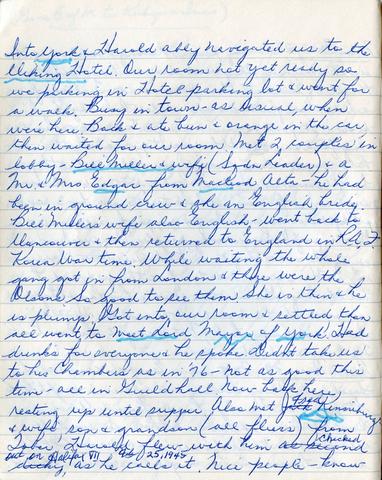 Into York & Harold ably navigated us to the
Viking Hotel. Our room not yet ready so
we parking in Hotel parking lot & went for
a walk. Busy in town - as usual, when
we're here. Back & ate bun & orange in the car
then waited for our room. Met 2 couples in
lobby - Bill Miller & wife (Leader) & a
Mr & Mrs. Edgar from Macleod Alta - he had
been in ground crew & she an English bride.
Bill Millers wife also English - went back to
Vancouver & then returned to England in
Korea War time. While waiting the whole
gang got in from London & there were the
Olsons. So good to see them. She is thin & he
is plump. Got into our room & settled then
all went to meet Lord Mayor of York. Had
drinks for everyone & he spoke. Didn't take us
to his Chambers as in '76 - not as good this
time - all in Guildhall. Now back here
resting up until supper. Also met Fred
& wife son & grandson (all fliers) from
Harold flew with him as second
out on Halifax VII 25, 1945 Checked
dickey, as he calls it. Nice people - know